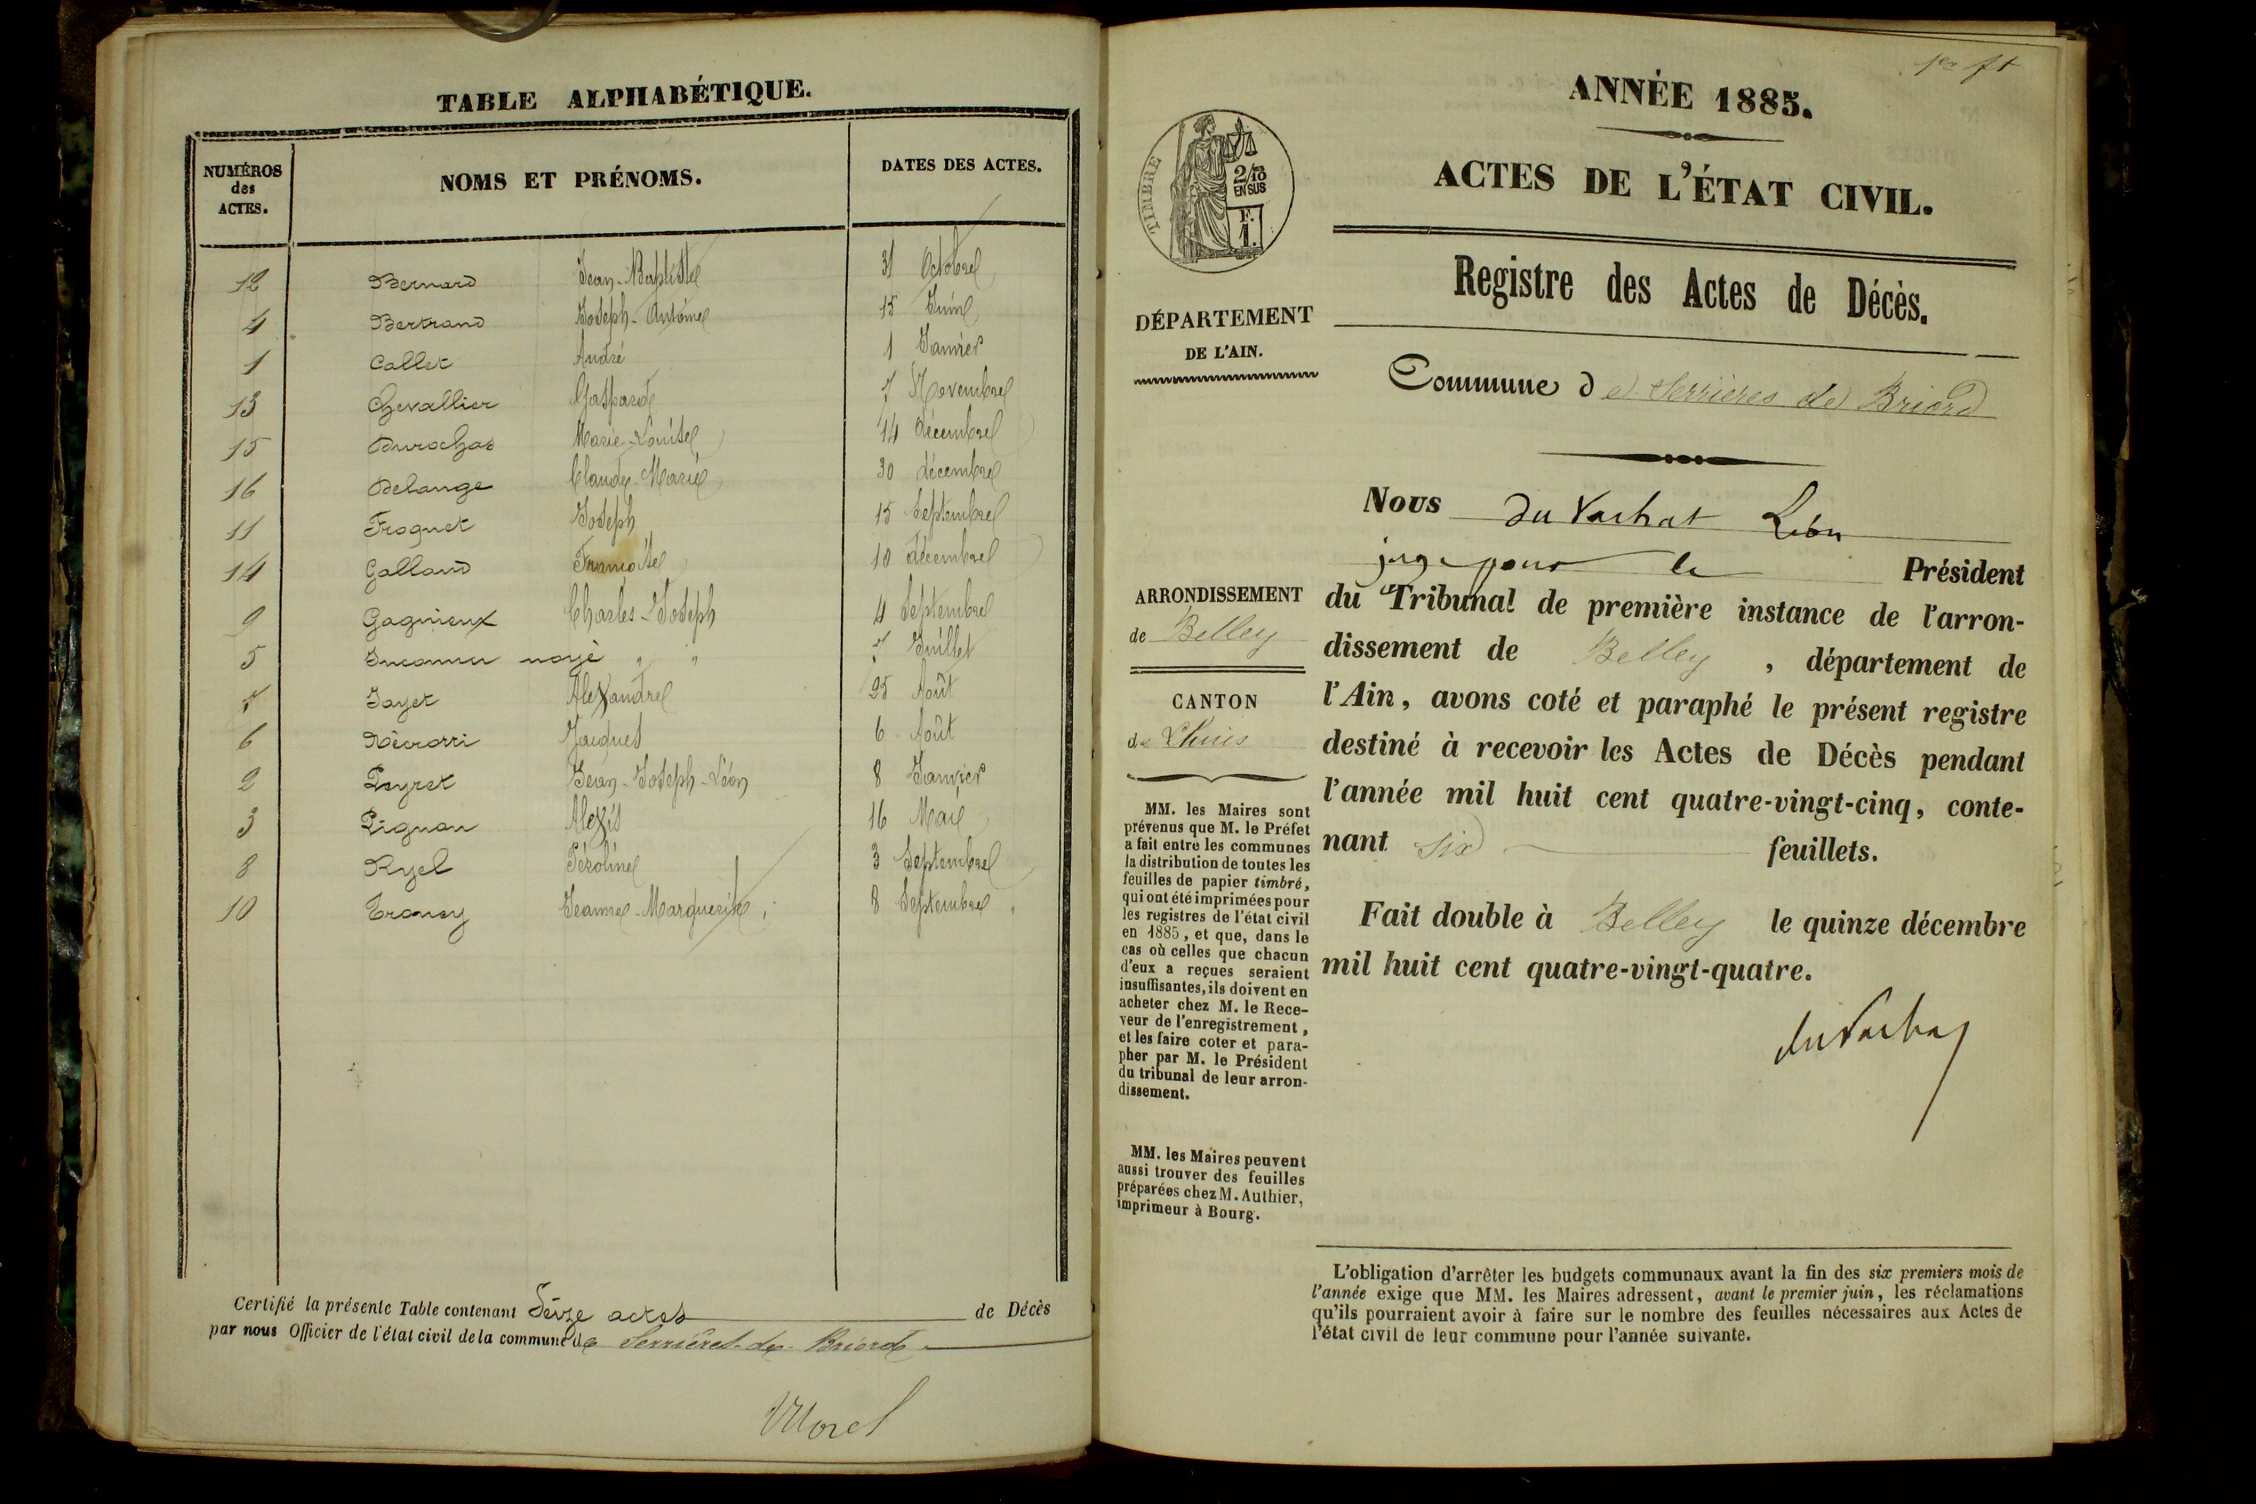 TABLE ALPHABÉTIQUE.
NUMÉROS des ACTES. NOMS ET PRÉNOMS. DATES DES ACTES.
12 Bernard Jean-Baptiste 31 Octobre
4 Bertrand Joseph-Antoine 15 Juin
1 Callet André 1 Janvier
13 Chevallier Gaspard 7 Novembre
15 Durochat Marie-Louise 14 décembre
16 Delange Claude-Marie 30 décembre
11 Froquet Joseph 15 Septembre
14 Galland Françoise 10 décembre
9 Gagnieux Charles-Joseph 4 Septembre
5 Inconnu noyé " " 7 Juillet
7 Jayet Alexandre 25 Août
6 Jacques 6 Août
2 Peyret Jean-Joseph-Léon 8 Janvier
3 Pignon Alexis 16 Mai
8 Ryel Péroline 3 Septembre
10 Jeanne-Marguerite 8 Septembre.
Certifié la présente Table contenant Seize actes de Décès
par nous Officier de l'état civil de la commune de Serrières-de-Briord
Morel
1er ft
ANNÉE 1885.
ACTES DE L'ÉTAT CIVIL.
TIMBRE
2/10
EN SUS
F.
1.
Registre des Actes de Décès.
DÉPARTEMENT
DE L'AIN.
Commune de Serrières de Briord
Nous du Vachat Léon
juge pour le Président
ARRONDISSEMENT
de Belley
CANTON
de Lhuis
du Tribunal de première instance de l'arron-
dissement de Belley, département de
l'Ain, avons coté et paraphé le présent registre
destiné à recevoir les Actes de Décès pendant
l'année mil huit cent quatre-vingt-cinq, conte-
nant six feuillets.
Fait double à Belley le quinze décembre
mil huit cent quatre-vingt-quatre.
du Vachat
MM. les Maires sont
prévenus que M. le Préfet
a fait entre les communes
la distribution de toutes les
feuilles de papier timbré,
qui ont été imprimées pour
les registres de l'état civil
en 1885, et que, dans le
cas où celles que chacun
d'eux a reçues seraient
insuffisantes, ils doivent en
acheter chez M. le Rece-
veur de l'enregistrement,
et les faire coter et para-
pher par M. le Président
du tribunal de leur arron-
dissement.
MM. les Maires peuvent
aussi trouver des feuilles
préparées chez M. Authier,
imprimeur à Bourg.
L'obligation d'arrêter les budgets communaux avant la fin des six premiers mois de
l'année exige que MM. les Maires adressent, avant le premier juin, les réclamations
qu'ils pourraient avoir à faire sur le nombre des feuilles nécessaires aux Actes de
l'état civil de leur commune pour l'année suivante.